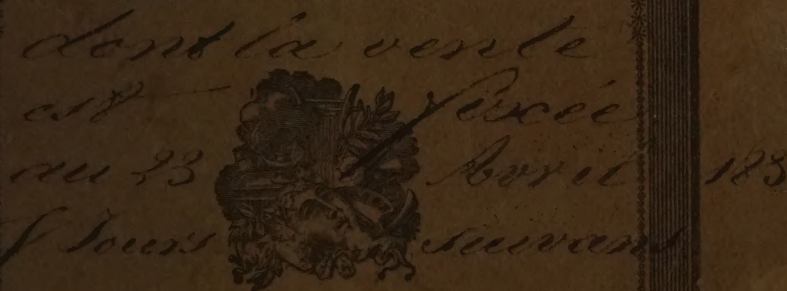 dont la vente
est fixée
au 23 Avril 183
Jours suivans